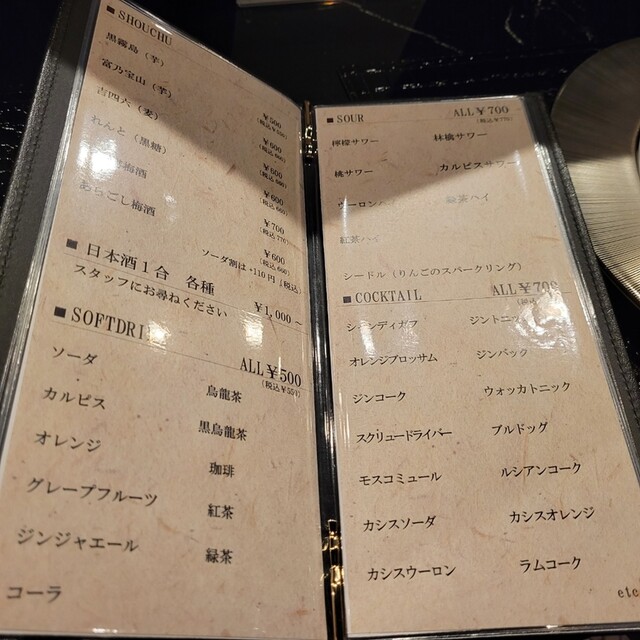 ■ SHOUCHU
黒霧島（芋）
¥500
富乃宝山（芋）
¥600
吉四六（麦）
¥600
れんと（黒糖）
¥600
梅酒
¥700
(税込770)
あらごし梅酒
¥600
(税込660)
ソーダ割は+110円（税込）
■ 日本酒1合 各種
¥1,000～
スタッフにお尋ねください
■ SOFTDRI
ALL¥500
(税込¥550)
ソーダ
烏龍茶
カルピス
黒烏龍茶
オレンジ
珈琲
グレープフルーツ
紅茶
ジンジャエール
緑茶
コーラ
■ SOUR ALL¥700
(税込¥770)
檸檬サワー 林檎サワー
桃サワー カルピスサワー
ウーロンハイ 緑茶ハイ
紅茶ハイ
シードル（りんごのスパークリング）
■ COCKTAIL ALL¥700
シャンディガフ ジントニック
オレンジブロッサム ジンバック
ジンコーク ウォッカトニック
スクリュードライバー ブルドッグ
モスコミュール ルシアンコーク
カシスソーダ カシスオレンジ
カシスウーロン ラムコーク
etc